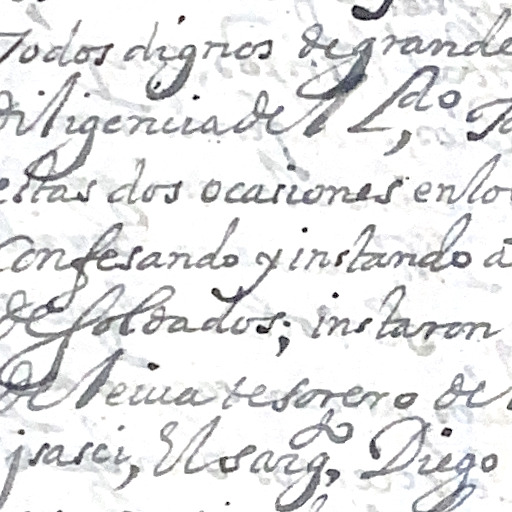 todos dignos de grande
diligencia del L.do
estas dos ocasiones en lo
confesando y instando a
de soldados; instaron
de leiua tesorero de
jsasci, El sarg.to Diego